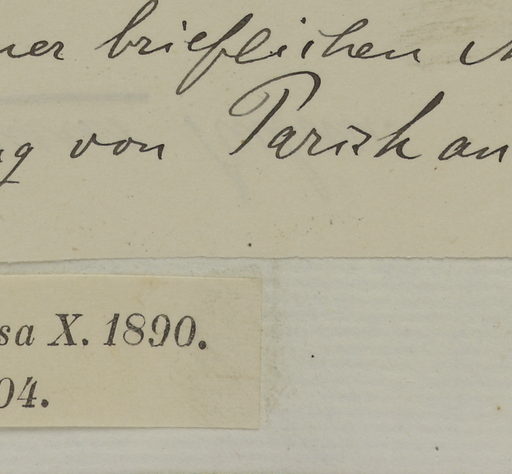 ner brieflichen M
ng von Parish an
sa X. 1890.
04.